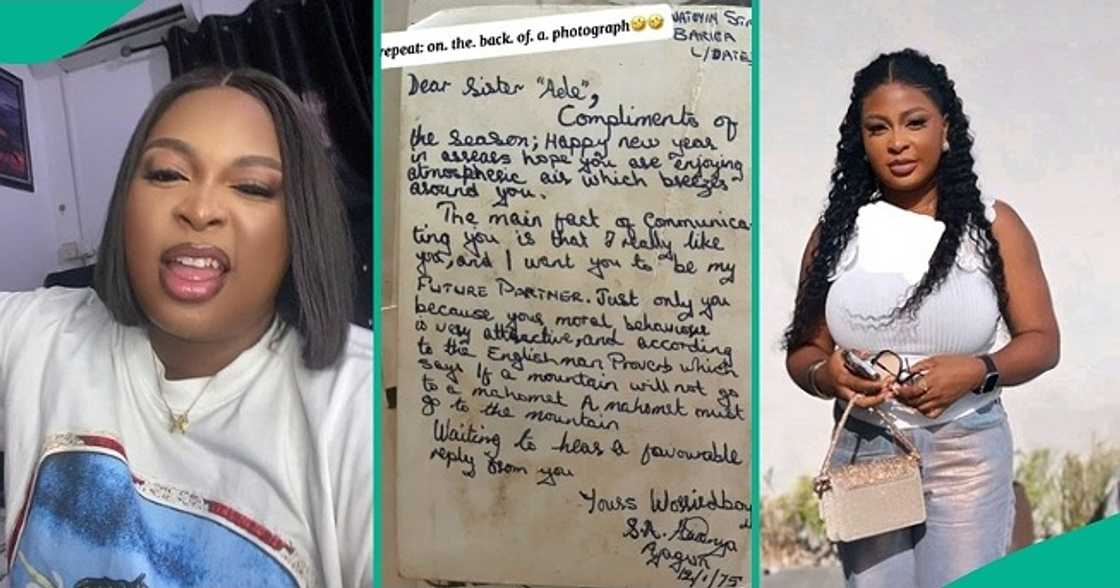 repeat: on. the. back. of. a. photograph🤣🤣
BARIGA
L/DATE
Dear Sister "Ade",
Compliments of
the season; Happy new year
in arrears hope you are enjoying
atmospheric air which breezes
around you.
The main fact of Communica-
ting you is that I really like
you, and I want you to be my
FUTURE PARTNER. Just only you
because your moral behaviour
is very attractive, and according
to the Englishman Proverb which
says If a mountain will not go
to a mahomet A mahomet must
go to the mountain
Waiting to hear a favourable
reply from you
Yours Worriedboy
S.A.
12/1/75